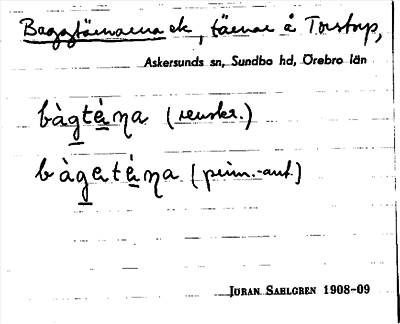 Baggtärnarna ek, tärnar å Torstorp,
Askersunds sn, Sundbo hd, Örebro län
bàgtèŋa (renskr.)
bàgatèŋa (prim.-ant.)
JÖRAN SAHLGREN 1908-09